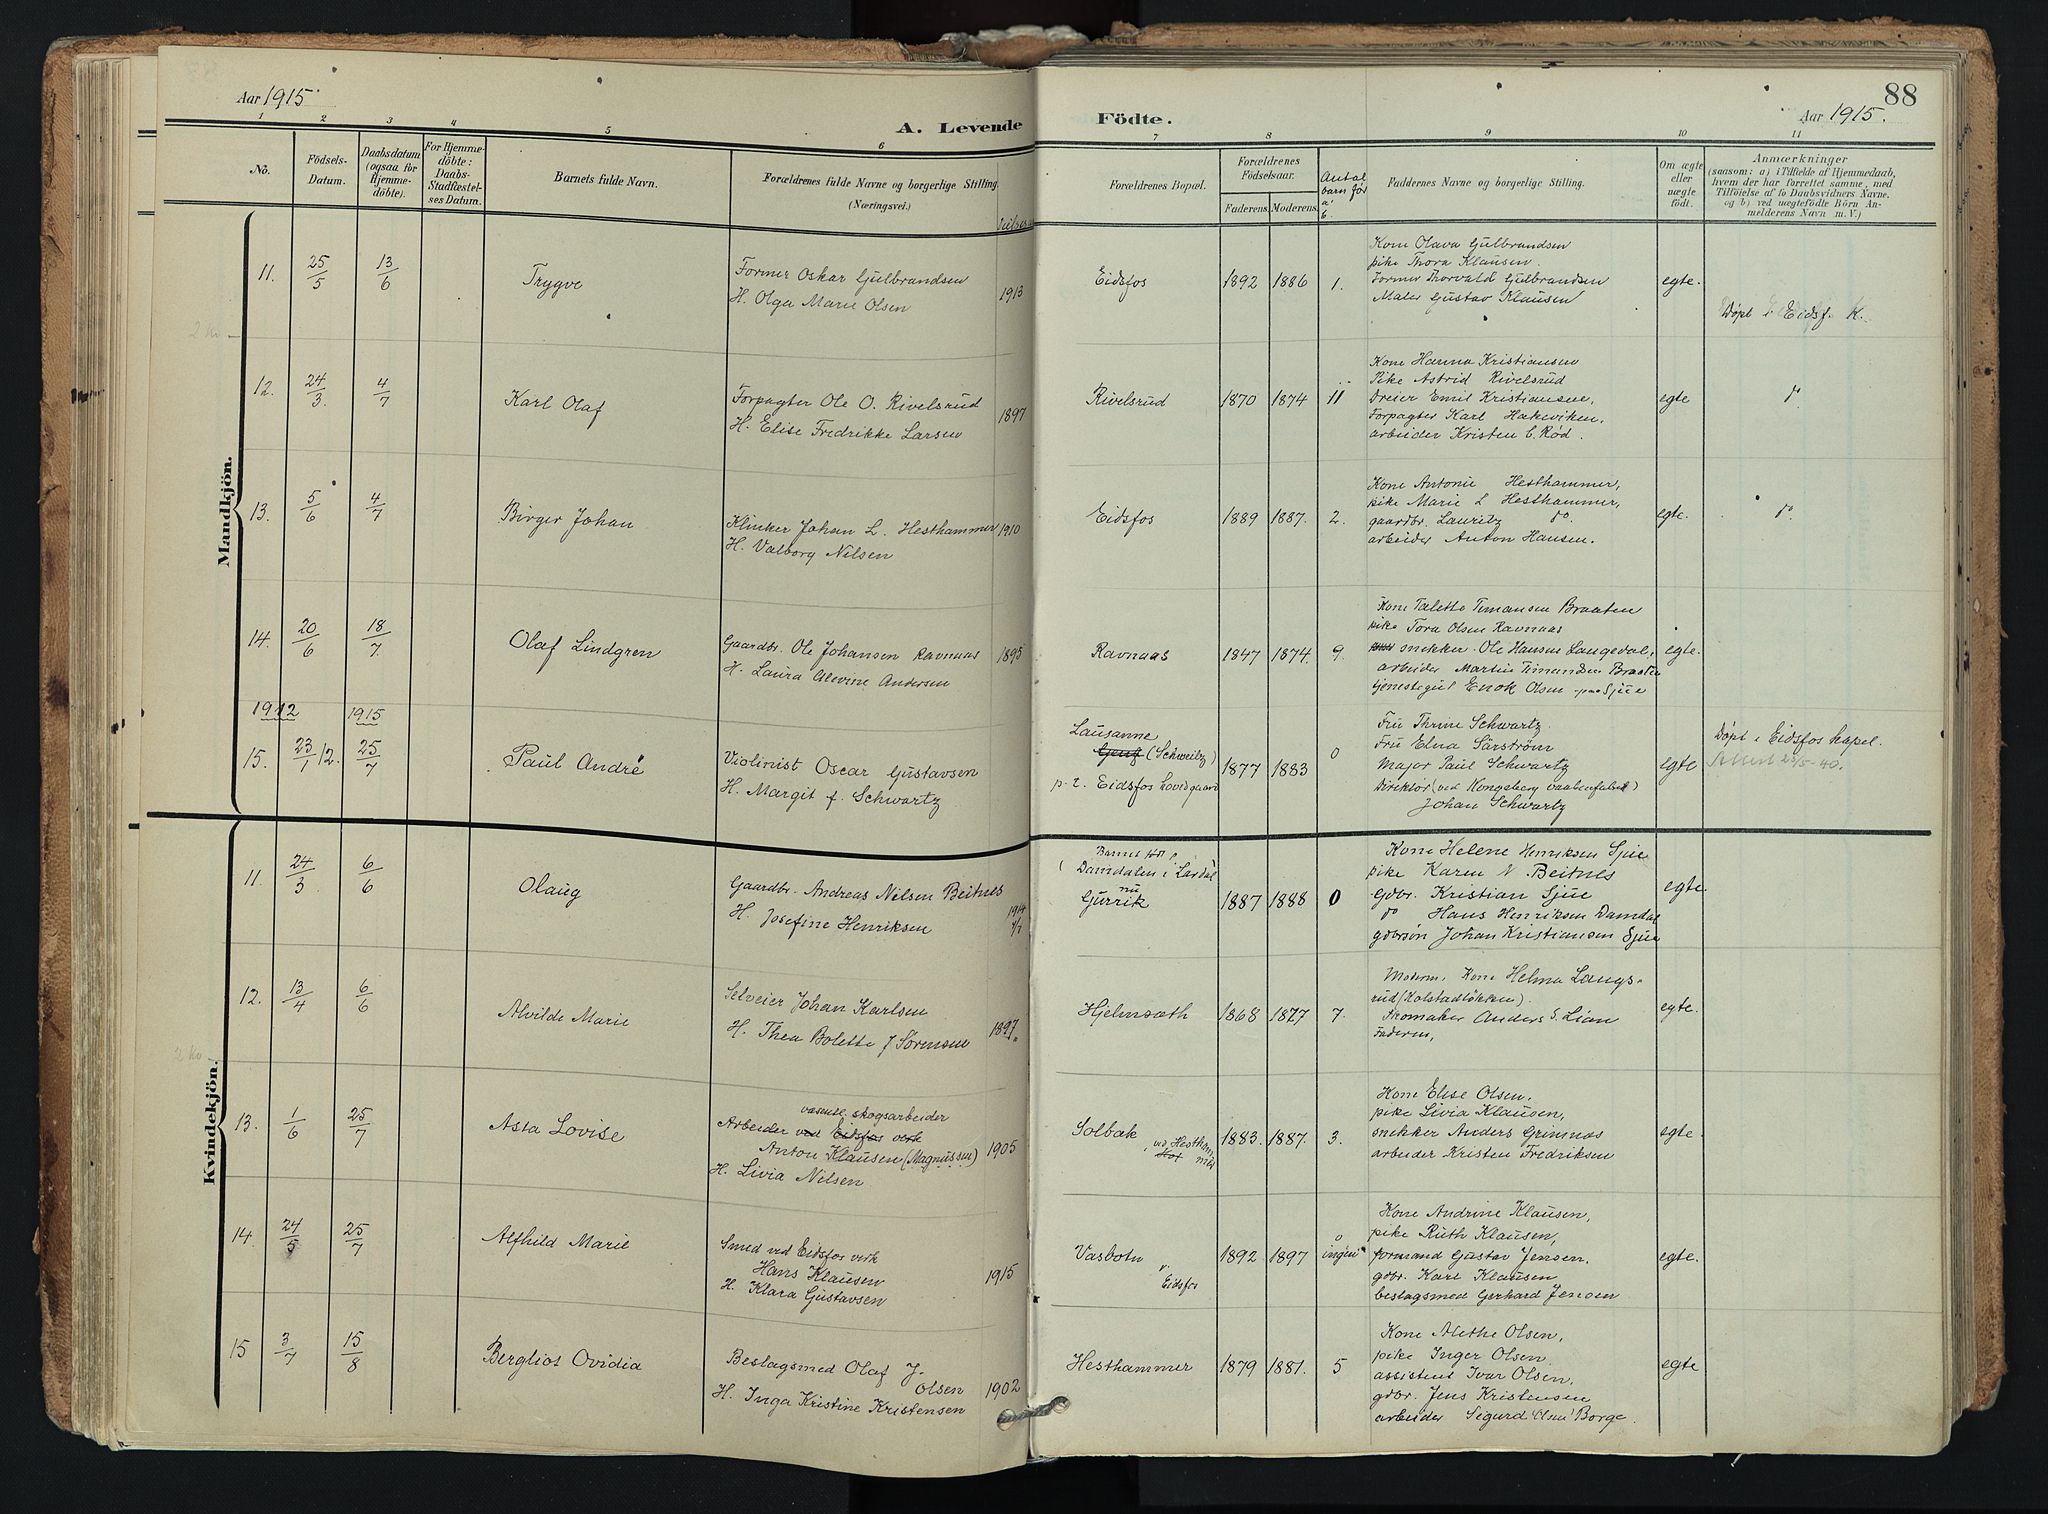 Aar 1915.
A. Levende
Födte.
88
Aar 1915.
1 2 3 4 5 6 7 8 9 10 11
No.
Födsels-
Datum.
Daabsdatum
(ogsaa for
Hjemme-
döbte).
For Hjemme-
döbte:
Daabs-
Stadfæstel-
ses Datum.
Barnets fulde Navn.
Forældrenes fulde Navne og borgerlige Stilling.
(Næringsvei.)
Forældrenes Bopæl.
Forældrenes
Födselsaar.
Faderens. Moderens.
Antal
barn før
Faddernes Navne og borgerlige Stilling.
Om ægte
eller
uægte
födt.
Anmærkninger
(saasom: a) i Tilfælde af Hjemmedaab,
hvem der har forrettet samme, med
Tilföielse af to Daabsvidners Navne,
og b) ved uægtefödte Börn An-
melderens Navn m. V.)
Mandkjön.
11. 25/5 13/6 Trygve
Former Oskar Gulbrandsen
H. Olga Marie Olsen
1913
Eidsfos 1892 1886 1.
Kone Olava Gulbrandsen
pike Thora Klausen.
Former Thorvald Gulbrandsen
Maler Gustav Klausen
egte.
Døpt i Eidsf. K.
2 Kv
12. 24/3 4/7 Karl Olaf
Forpagter Ole O. Rivelsrud
H. Elise Fredrikke Larsen
1897
Rivelsrud 1870 1874 11
Kone Hanna Kristiansen
Pike Astrid Rivelsrud
Dreier Emil Kristiansen,
Forpagter Karl Hakeviken,
arbeider Kristen C. Rød.
egte
do.
13. 5/6 4/7 Birger Johan
Klinker Johan L. Hesthammer
H. Valborg Nilsen
1910
Eidsfos 1889 1887. 2.
Kone Antonie Hesthammer,
pike Marie L Hesthammer,
gaardbr. Lauritz do.
arbeider Anton Hansen.
egte.
do.
14. 20/6 18/7 Olaf Lindgren
Gaardbr. Ole Johansen Ravnaas
H. Laura Alevine Andersen
1895
Ravnaas 1847 1874. 9.
Kone Talette Timansen Braaten
pike Tora Olsen Ravnaas
snekker Ole Hansen Langedal,
arbeider Martin Timandsen Braaten
tjenestegut Enok Olsen Sjue
egte.
1912 1915
15. 23/1 12. 25/7 Paul André
Violinist Oscar Gustavsen
H. Margit f. Schwartz
Lausanne
Genf (Schweitz)
p. t. Eidsfos hovedgaard
1877 1883 0
Fru Thrine Schwartz
Fru Elna Särström
Major Paul Schwartz
Direktør (ved Kongsberg vaabenfabrik)
Johan Schwartz
egte
Døpt i Eidsfos kapel.
25/5-40.
Kvindekjön.
11. 24/3 6/6 Olaug
Gaardbr. Andreas Nilsen Beitnes
H. Josefine Henriksen
1914
Barnet født i
Damdalen i Lardal
nu
Gurrik
1887 1888 0
Kone Helene Henriksen Sjue
pike Karen N Beitnes
Gdbr. Kristian Sjue
do Hans Henriksen Damdal
gdbrsøn Johan Kristiansen Sjue
egte.
12. 13/4 6/6 Alvilde Marie
Selveier Johan Karlsen
H. Thea Bolette J Sørensen
1897.
Hjelmsæth 1868 1877 7.
Moderen, Kone Helma Langs-
rud (Kolstadløkken).
Skomaker Anders S. Lian
Faderen,
egte.
2 Kv
13. 1/6 25/7 Asta Lovise
væsentl. skogsarbeider
Arbeider ved Eidsfos verk
Anton Klausen (Magnussen)
H. Livia Nilsen
1905
Solbak, ved Hestham
mer
1883. 1887. 3.
Kone Elise Olsen,
pike Livia Klausen,
snekker Anders Grimnes
arbeider Kristen Fredriksen
egte.
14. 24/5 25/7 Alfhild Marie
Smed ved Eidsfos verk
Hans Klausen
H. Klara Gustavsen
1915
Vasbotn
v.
Eidsfos
1892 1897 0
ingen
Kone Andrine Klausen,
pike Ruth Klausen,
formand Gustav Jensen,
gdbr. Karl Klausen
beslagsmed Gerhard Jensen
egte.
15 3/7 15/8 Bergliot Ovidia
Beslagsmed Olaf J.
Olsen
H. Inga Kristine Kristensen
1902
Hesthammer 1879 1881. 5
Kone Alethe Olsen,
pike Inger Olsen
assistent Ivar Olsen,
gdbr. Jens Kristensen
arbeider Sigurd Olsen Borge.
egte